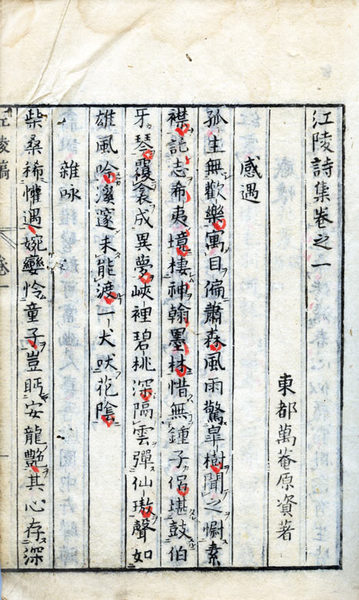 江陵詩集卷之一
東都萬菴原資著
感遇
孤生無歡樂寓目偏蕭森風雨驚皐樹聞之惻素
襟託志希夷境棲神翰墨林惜無鍾子侶堪鼓伯
牙琴覆衾成異夢峽裡碧桃深隔雲彈仙璈聲如
雄風吟溪邃未能渡一犬吠花陰
雜咏
柴桑稀懽遇婉孌怜童子豈眄安龍艷其心存深
江陵稿 卷一